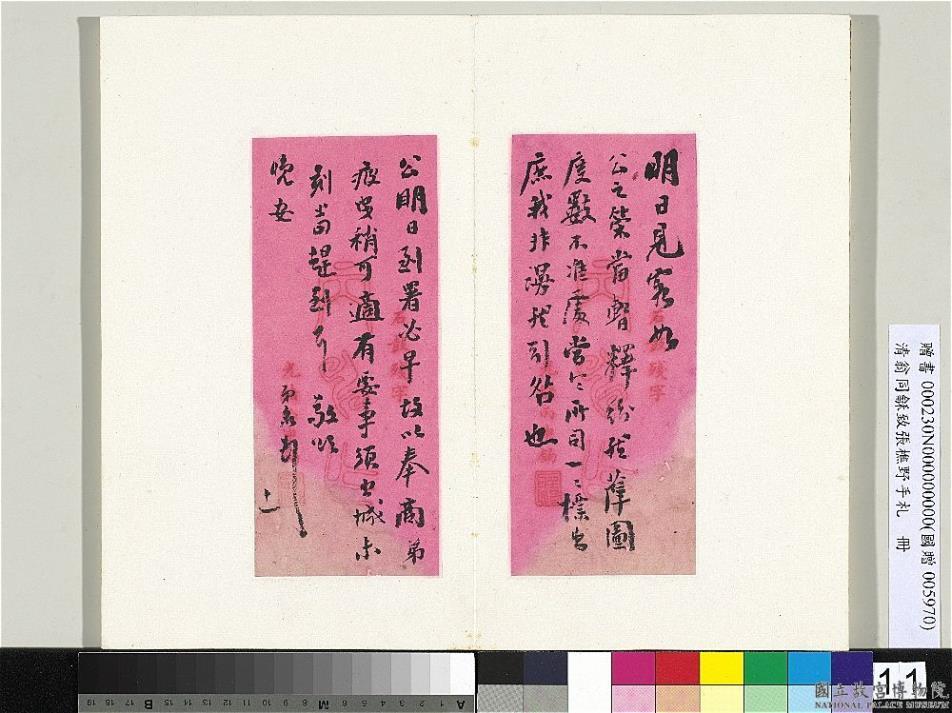 明日見客如
公之策當暫釋紛然薩圖
度數不准處當令所司一一標出
庶我非漫然引咎也
公明日到署必早故以奉商弟
疲曳稍可適有要事須出城未
刻當趕到耳敬頌
晚安
十一
贈書 000230N000000000(國贈 005970)
清翁同龢致張樵野手札 冊
11
國立故宮博物院
NATIONAL PALACE MUSEUM